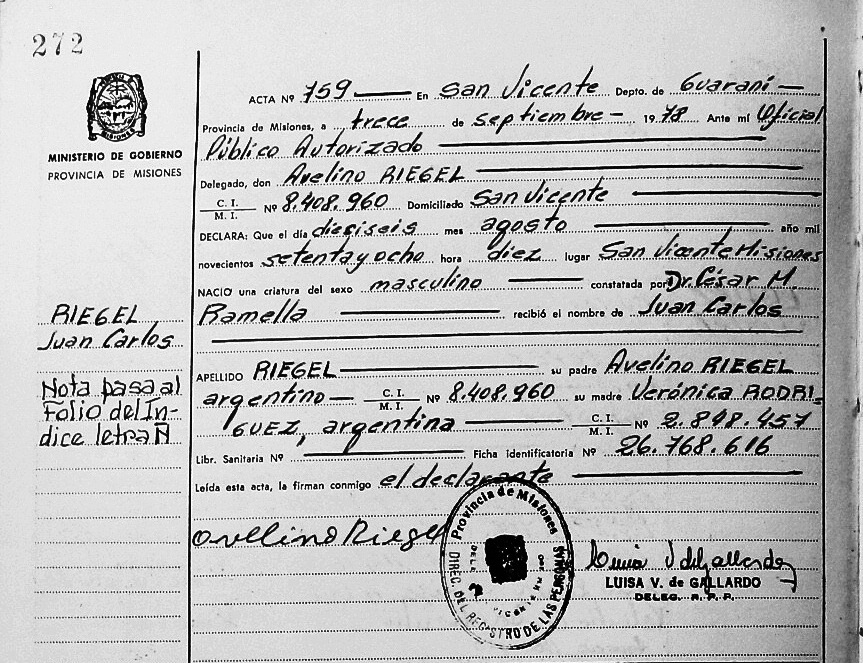 272
MISIONES
MINISTERIO DE GOBIERNO
PROVINCIA DE MISIONES
RIEGEL
Juan Carlos
Nota pasa al
Folio del Ín-
dice letra Ñ
ACTA Nº 759 En San Vicente Depto. de Guaraní
Provincia de Misiones, a trece de septiembre 1978 Ante mí Oficial
Público Autorizado
Delegado, don Avelino RIEGEL
C. I.
M. I. Nº 8.408.960 Domiciliado San Vicente
DECLARA: Que el día dieciseis mes agosto año mil
novecientos setenta y ocho hora diez lugar San Vicente Misiones
NACIO una criatura del sexo masculino constatada por Dr. César M.
Ramella recibió el nombre de Juan Carlos
APELLIDO RIEGEL su padre Avelino RIEGEL
argentino C. I.
M. I. Nº 8.408.960 su madre Verónica RODRI-
GUEZ, argentina C. I.
M. I. Nº 2.848.457
Libr. Sanitaria Nº Ficha identificatoria Nº 26.768.616
Leída esta acta, la firman conmigo el declarante
Avellino Riegel
Provincia de Misiones
DIREC. DEL REGISTRO DE LAS PERSONAS
LUISA V. de GALLARDO
DELEG. R. P. P.